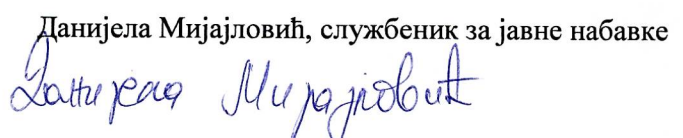 Данијела Мијајловић, службеник за јавне набавке
Данијела Мијајловић